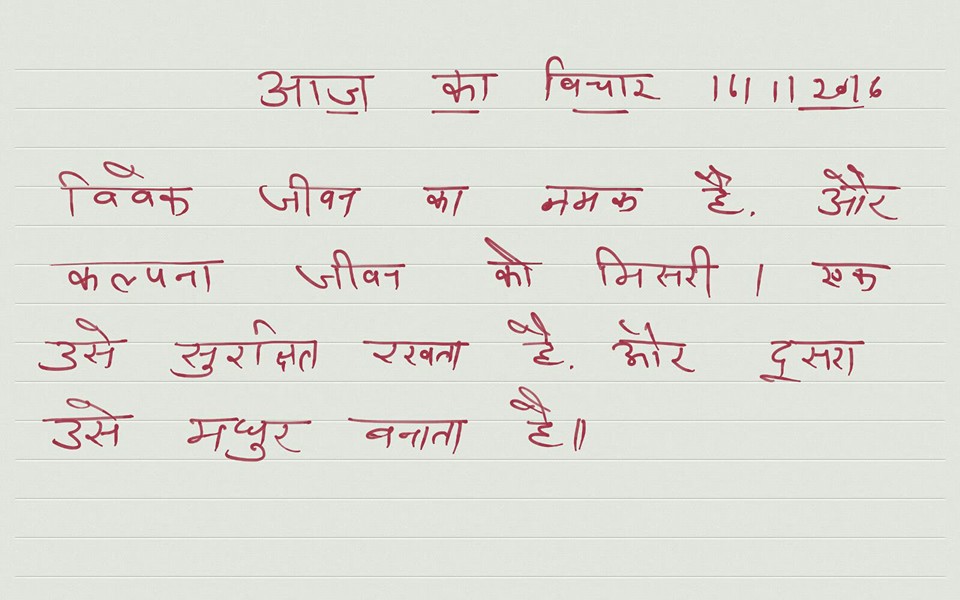 आज का विचार 16/11/2016
विवेक जीवन का नमक है. और
कल्पना जीवन को मिसरी । एक
उसे सुरक्षित रखता है. और दूसरा
उसे मधुर बनाता है॥